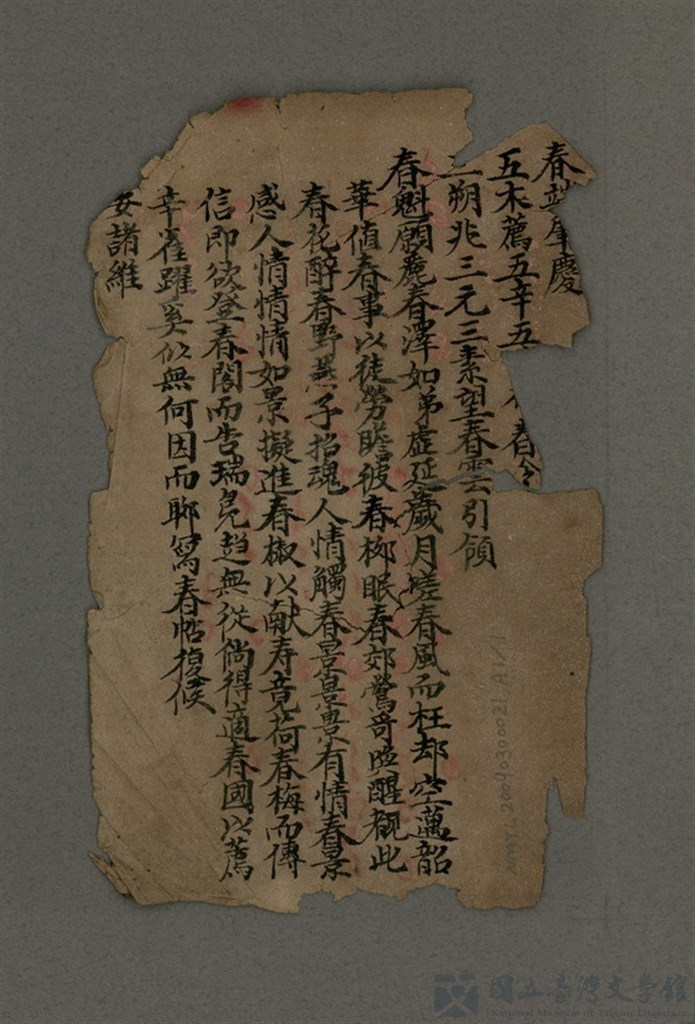 春端肇慶
五木薦五辛五 春令
朔兆三元三素望春雲引領
春魁願麂春澤如弟虛延歲月嗟春風而枉却空邁韶
華值春事以徒勞瞻彼春柳眠春郊鶯哥喚醒覩此
春花醉春野燕子招魂人情觸春景景有情春景
感人情情情如景擬進春椒以献寿竟荷春梅而傳
信即欲登春閣而告瑞鳧趋無從倘得適春國以薦
辛雀躍奚似無何因而聊寫春帖復候
安諸維
NMTL20040300021 A1/1
國立臺灣文學館
National Museum of Taiwan Literature